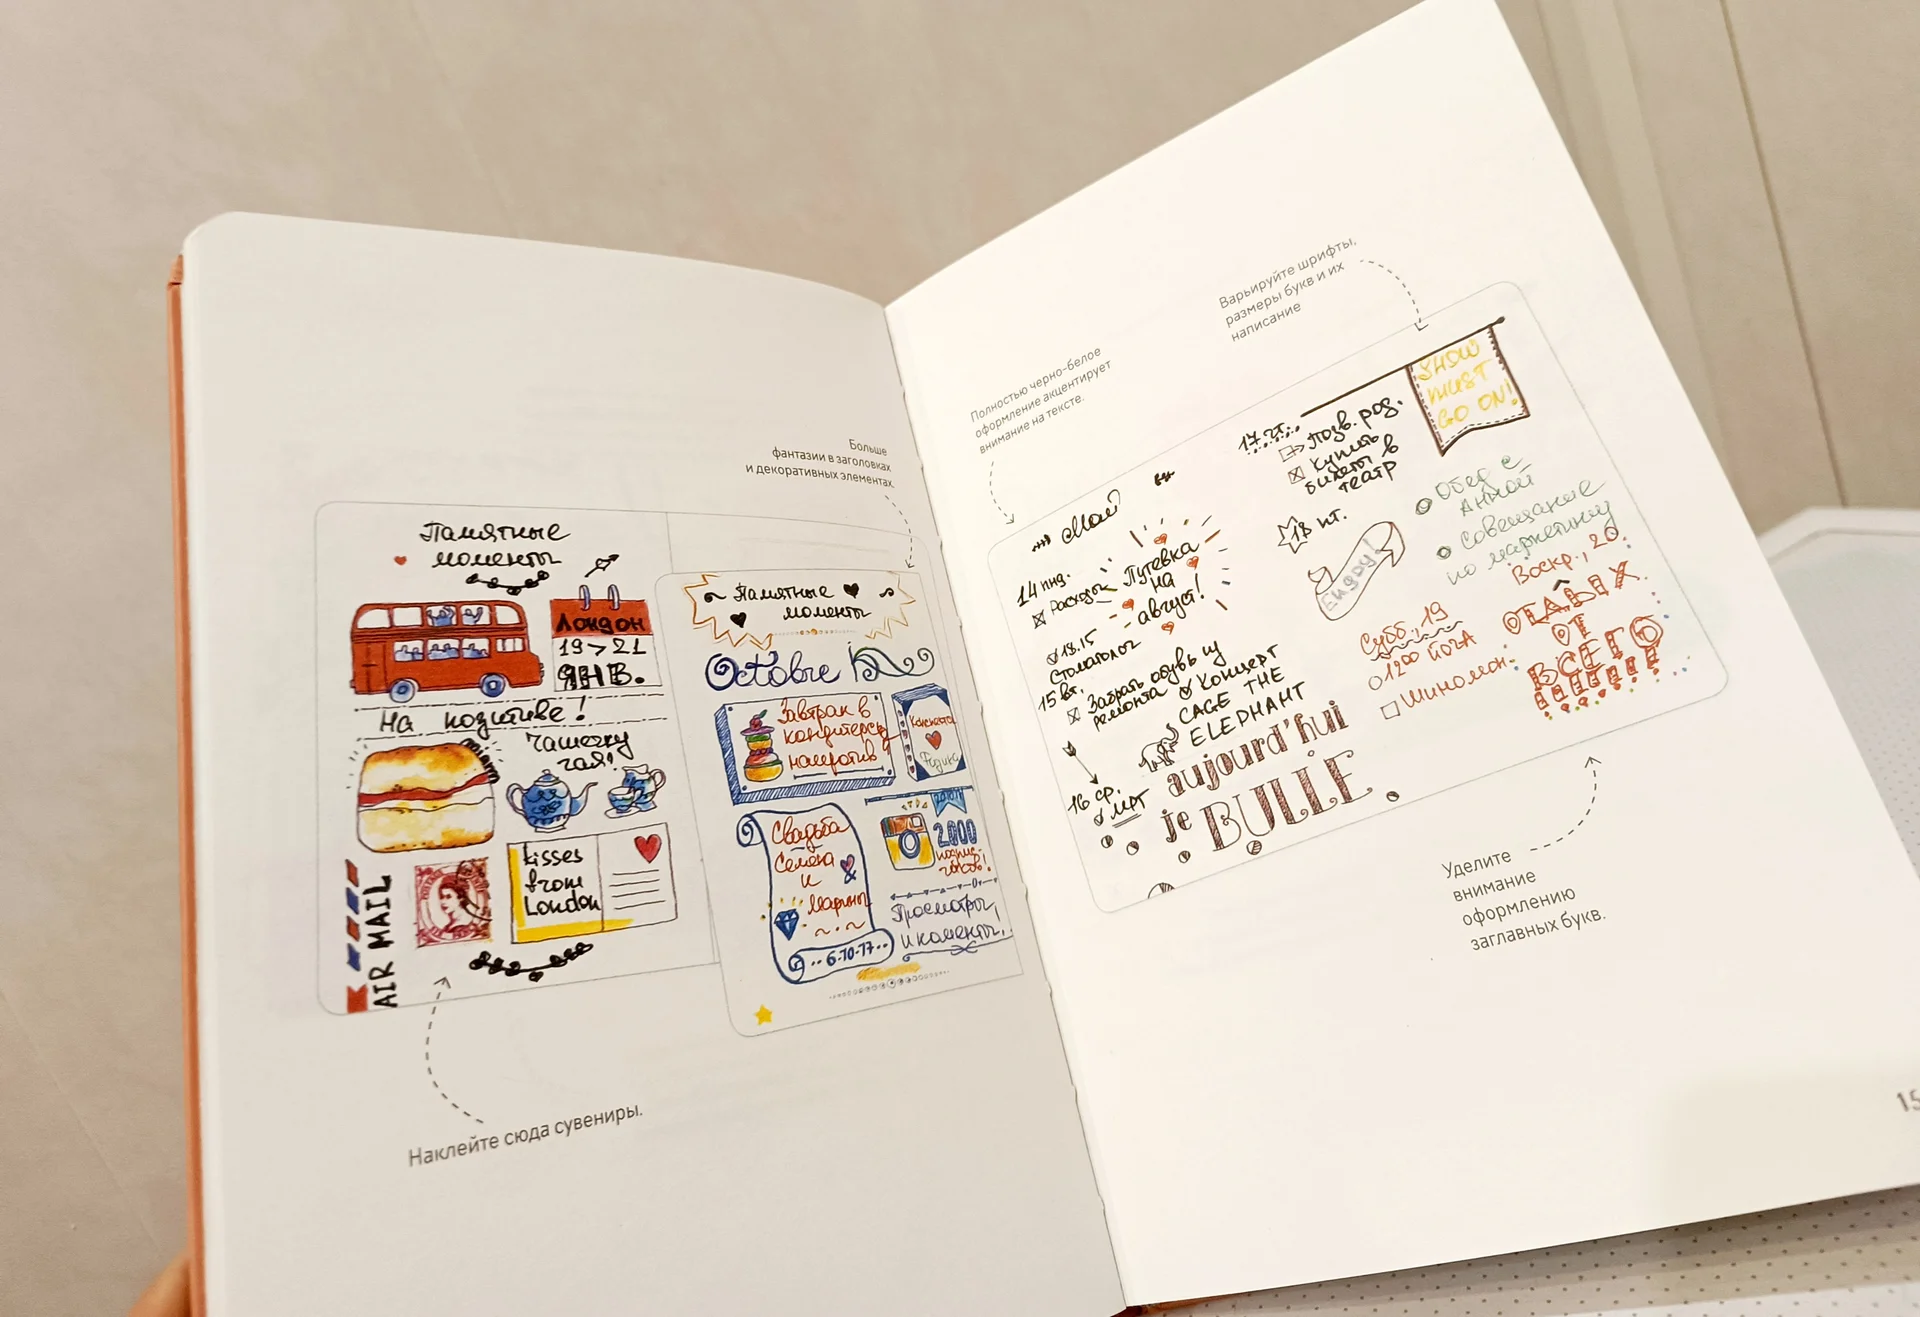 Больше
фантазии в заголовках
и декоративных элементах.
Памятные
моменты
Лондон
19>21
ЯНВ.
На позитиве!
Чашечку
чая!
kisses
from
London
AIR MAIL
Наклейте сюда сувениры.
Памятные
моменты
Octobre
Завтрак в
кондитерской
напротив
Свадьба
Семёна
и
Марины
6-10-17
2000
Просмотры
и коменты.
Полностью черно-белое
оформление акцентирует
внимание на тексте.
Варьируйте шрифты,
размеры букв и их
написание
Май
14 пнд.
Расходы
Путевка
на
август!
18.15
Стоматолог
15 вт.
Забрать обувь из
ремонта
Концерт
CAGE THE
ELEPHANT
16 ср.
МРТ
aujourd'hui
je BULLE
17 чт.
Позв. род.
Купить
билеты в
театр
SHOW
MUST
GO ON!
18 пт.
Enjoy!
Обед с
Анной
Совещание
по маркетингу
Субб., 19
1200 йога
Шиномон.
Воскр., 20.
ОТДЫХ
ОТ
ВСЕГО
Уделите
внимание
оформлению
заглавных букв.
15